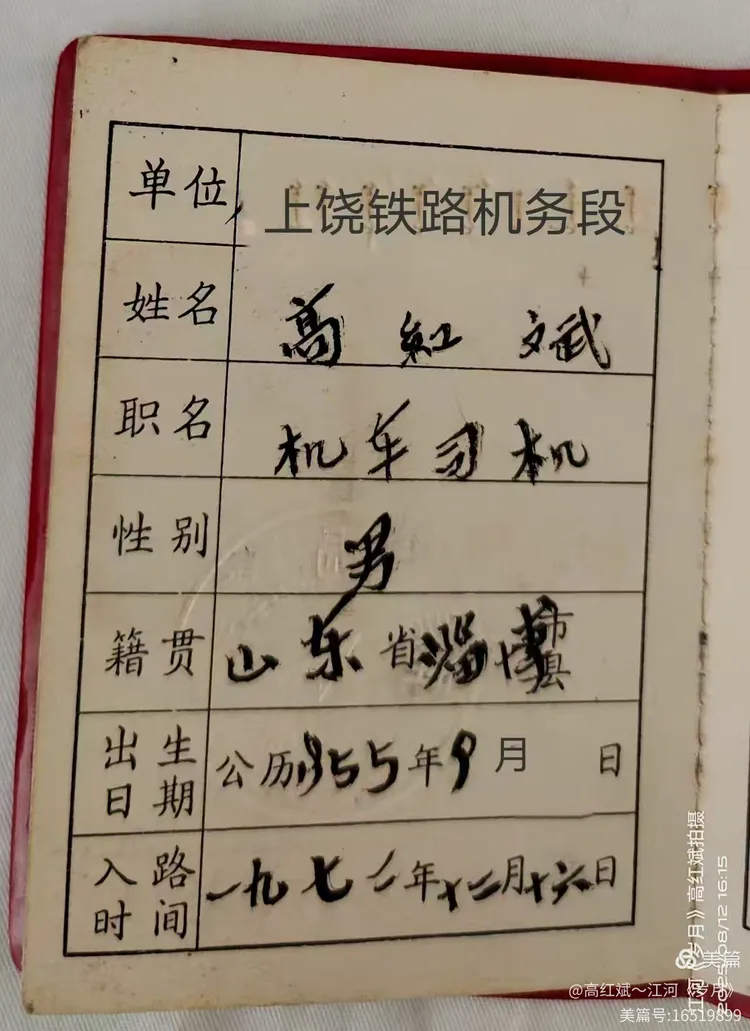 单位 上饶铁路机务段
姓名 高紅斌
职名 机车司机
性别 男
籍贯 山东省淄博市县
出生日期 公历1955年9月 日
入路时间 一九七 年十二月十六日
江河《岁月》高红斌拍摄
2025/08/12 16:15
美篇
@高红斌～江河《岁月》
美篇号:16519899